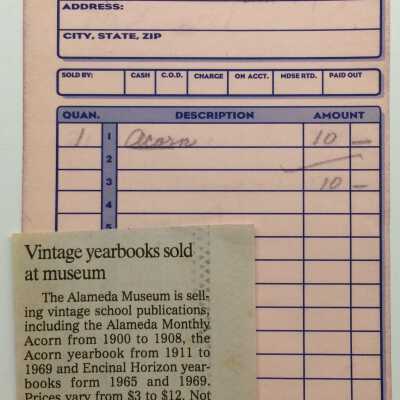 ADDRESS:
CITY, STATE, ZIP
SOLD BY: CASH C.O.D. CHARGE ON ACCT. MDSE RTD. PAID OUT
QUAN. DESCRIPTION AMOUNT
1 1 Acorn 10 —
2
3 10 —
4
Vintage yearbooks sold
at museum
The Alameda Museum is sell-
ing vintage school publications,
including the Alameda Monthly
Acorn from 1900 to 1908, the
Acorn yearbook from 1911 to
1969 and Encinal Horizon year-
books form 1965 and 1969.
Prices vary from $3 to $12. Not